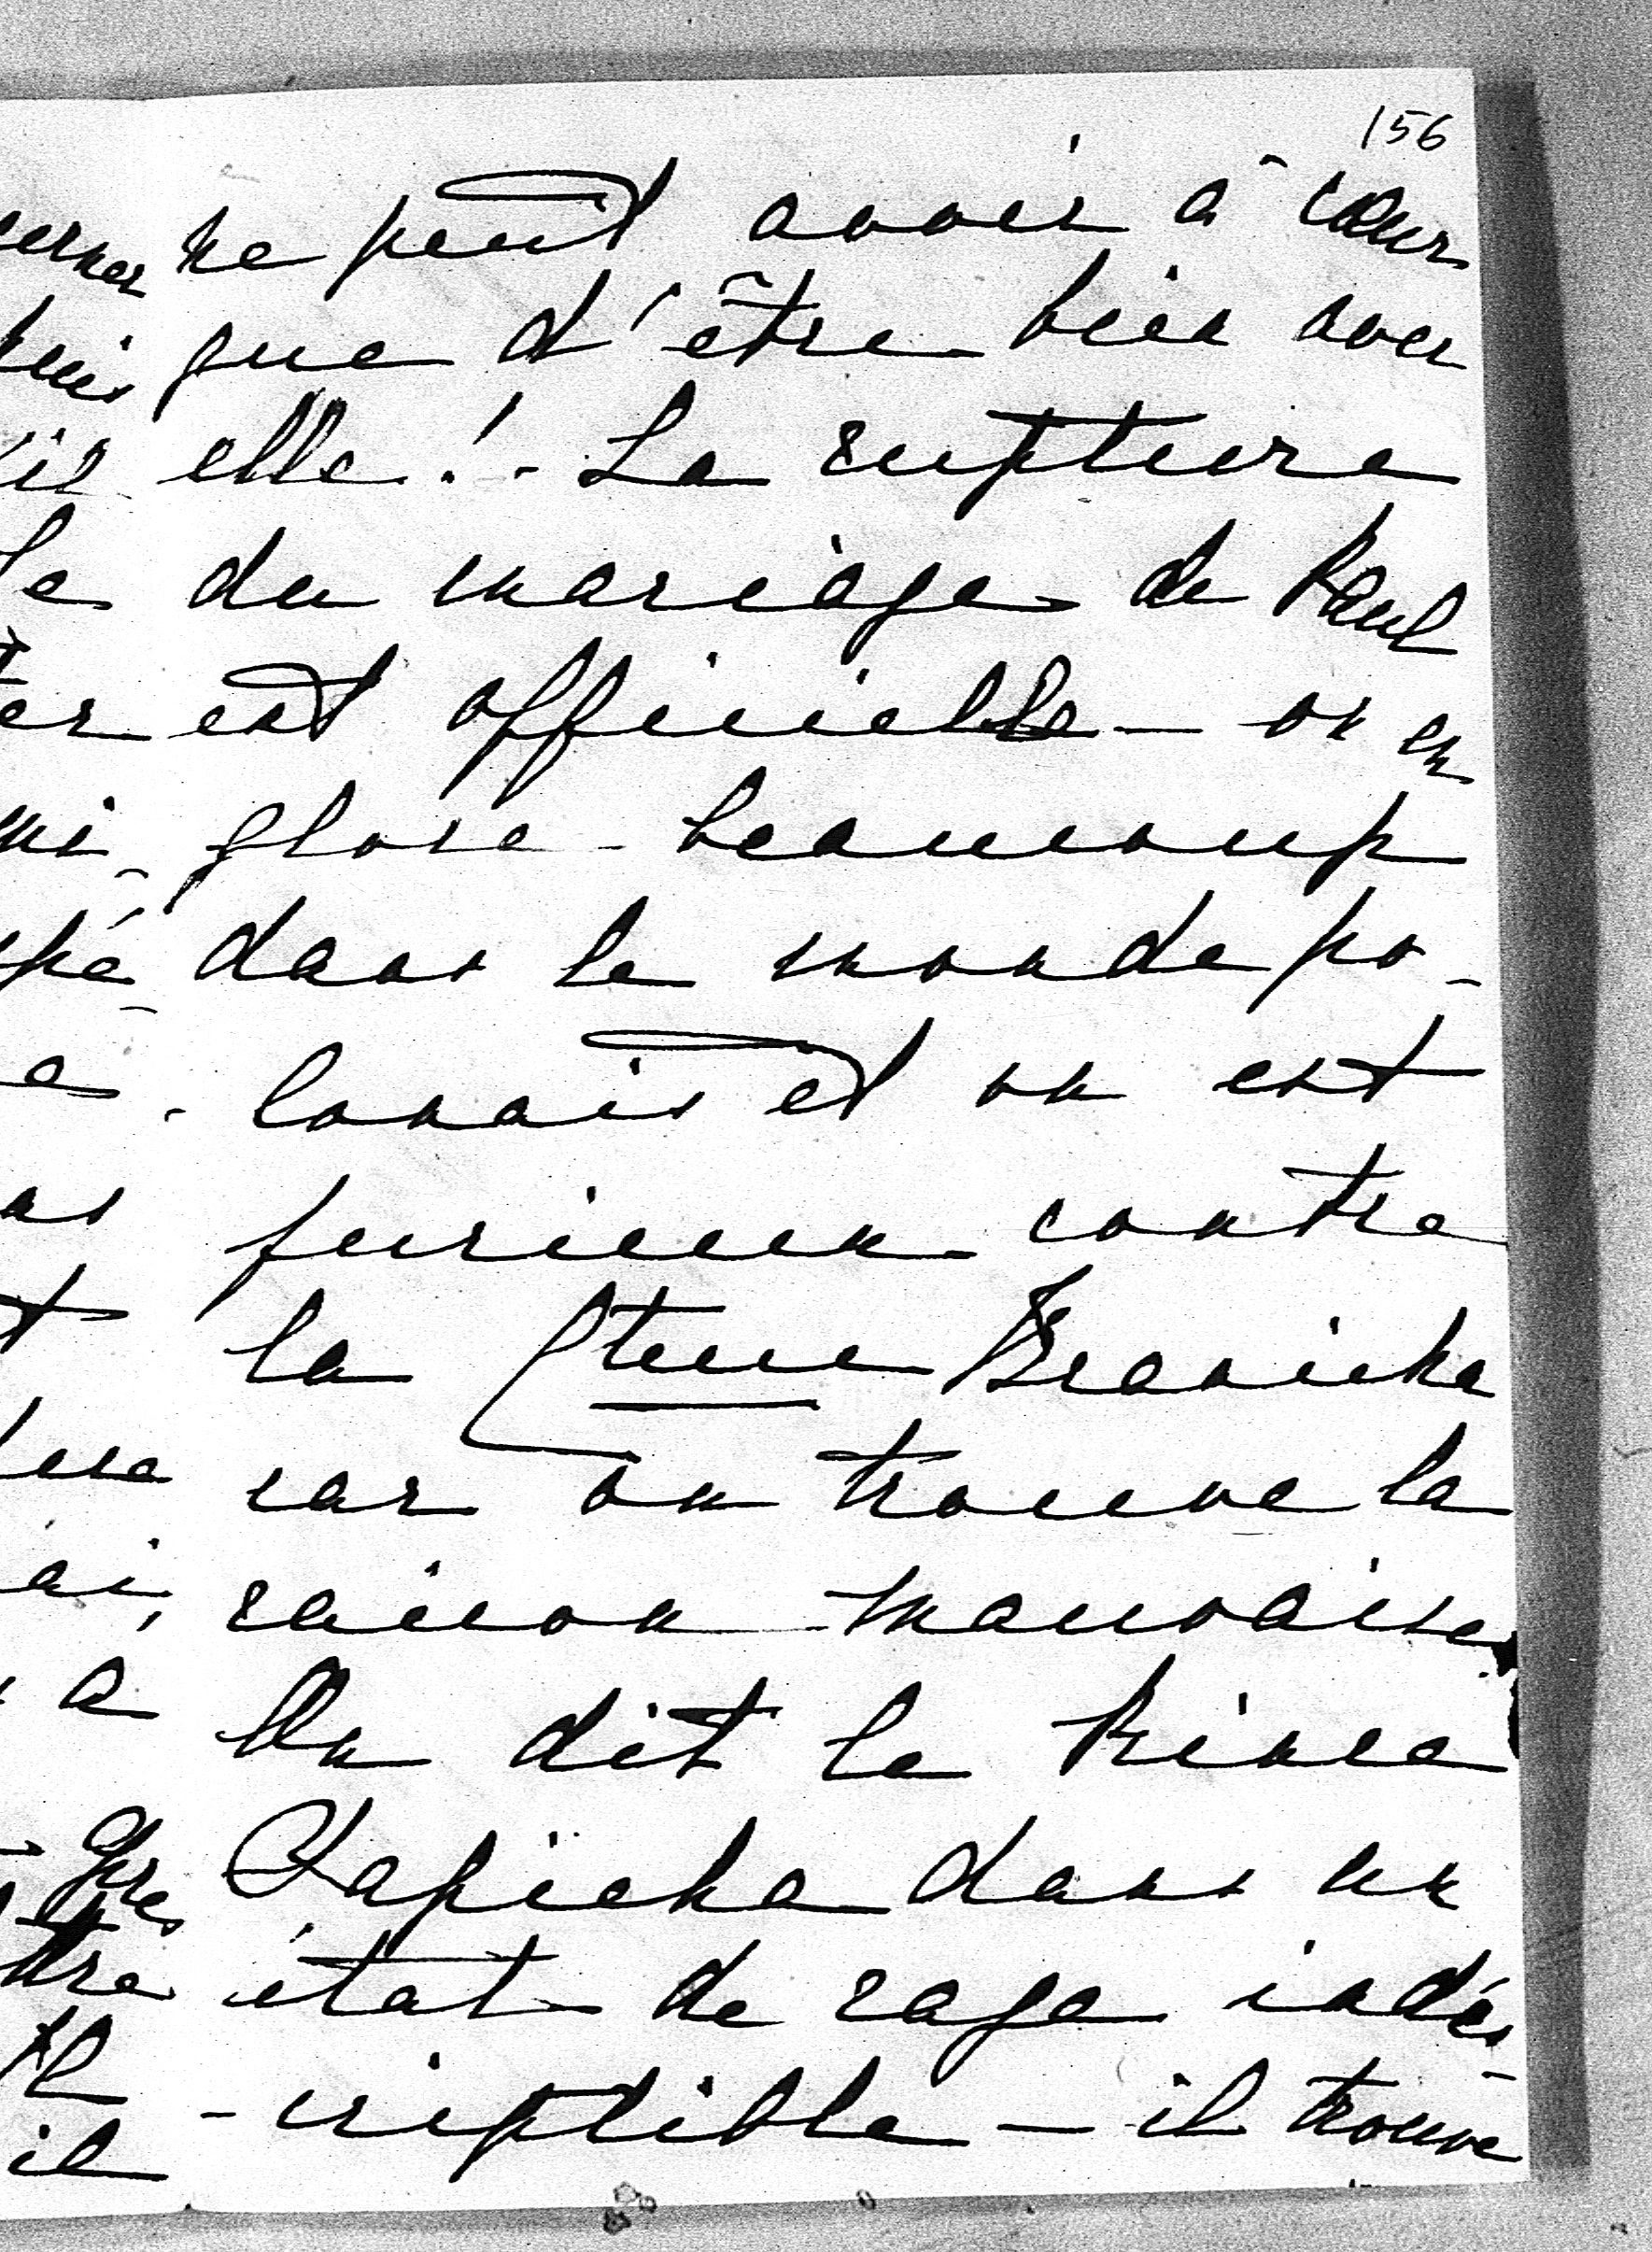 156
ne peut avoir à cœur
que d'être bien avec
elle! - La rupture
du mariage de Paul
est officielle - on en
glose beaucoup
dans le monde po-
lonais et on est
furieux contre
la Ctesse Branicka
car on trouve la
raison mauvaise
On dit le Prince
Sapieha dans un
état de rage indes-
-criptible - il trouve